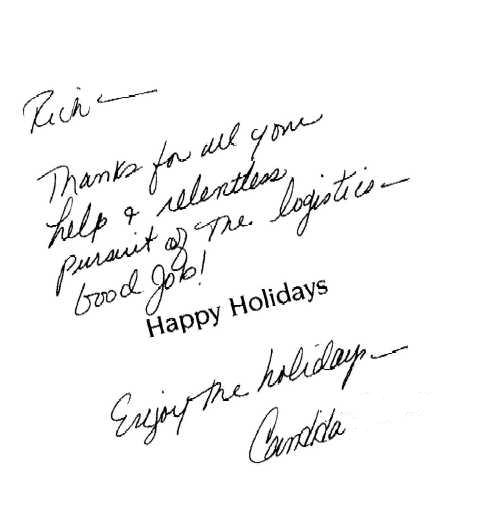 Rich —
Thanks for all your
help & relentless
pursuit of The logistics —
Good Job!
Happy Holidays
Enjoy The holidays —